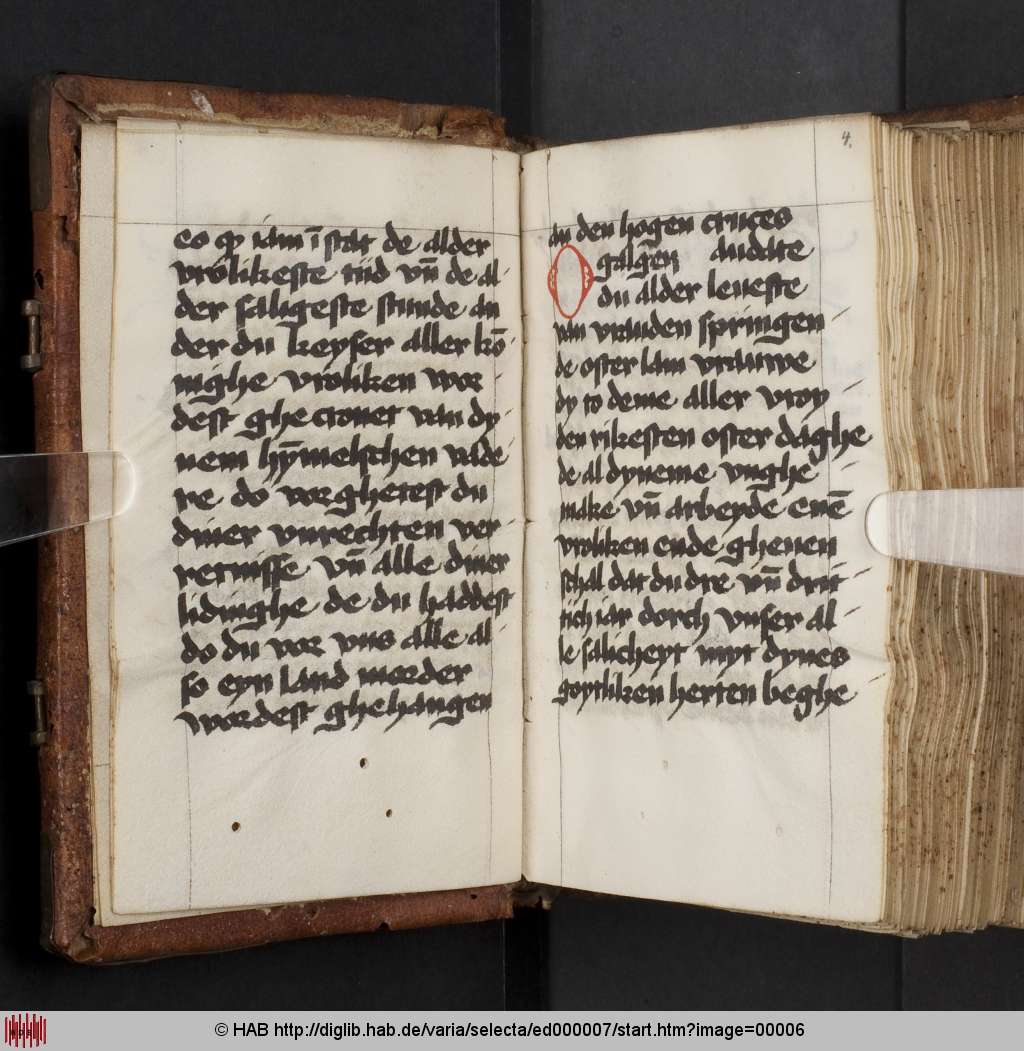 eo qͥ iam ī stat de alder
vrolikeste tiid vn̄ de al-
der saligeste stunde an
der du keyser aller kō-
nighe vroliken wor
dest ghe cronet van dy-
nem hȳmelschen vade
re do vorghetest du
diner vnrechten ver-
retnisse vn̄ alle diner
lidinghe de du haddest
do du vor vns alle al-
so eyn land morder
wordest ghehangen
4.
an den hogen cruces
galgen andate
O du alder leueste
van vrauden springen
de oster lam vrauwe
dy to deme aller vroy-
den rikesten oster daghe
de al dyneme vnghe-
make vn̄ arbeyde enē
vroliken ende gheuen
schal dat du dre vn̄ drit-
tich iar dorch vnser al-
le salicheyt myt dynes
goytliken herten beghe-
© HAB http://diglib.hab.de/varia/selecta/ed000007/start.htm?image=00006